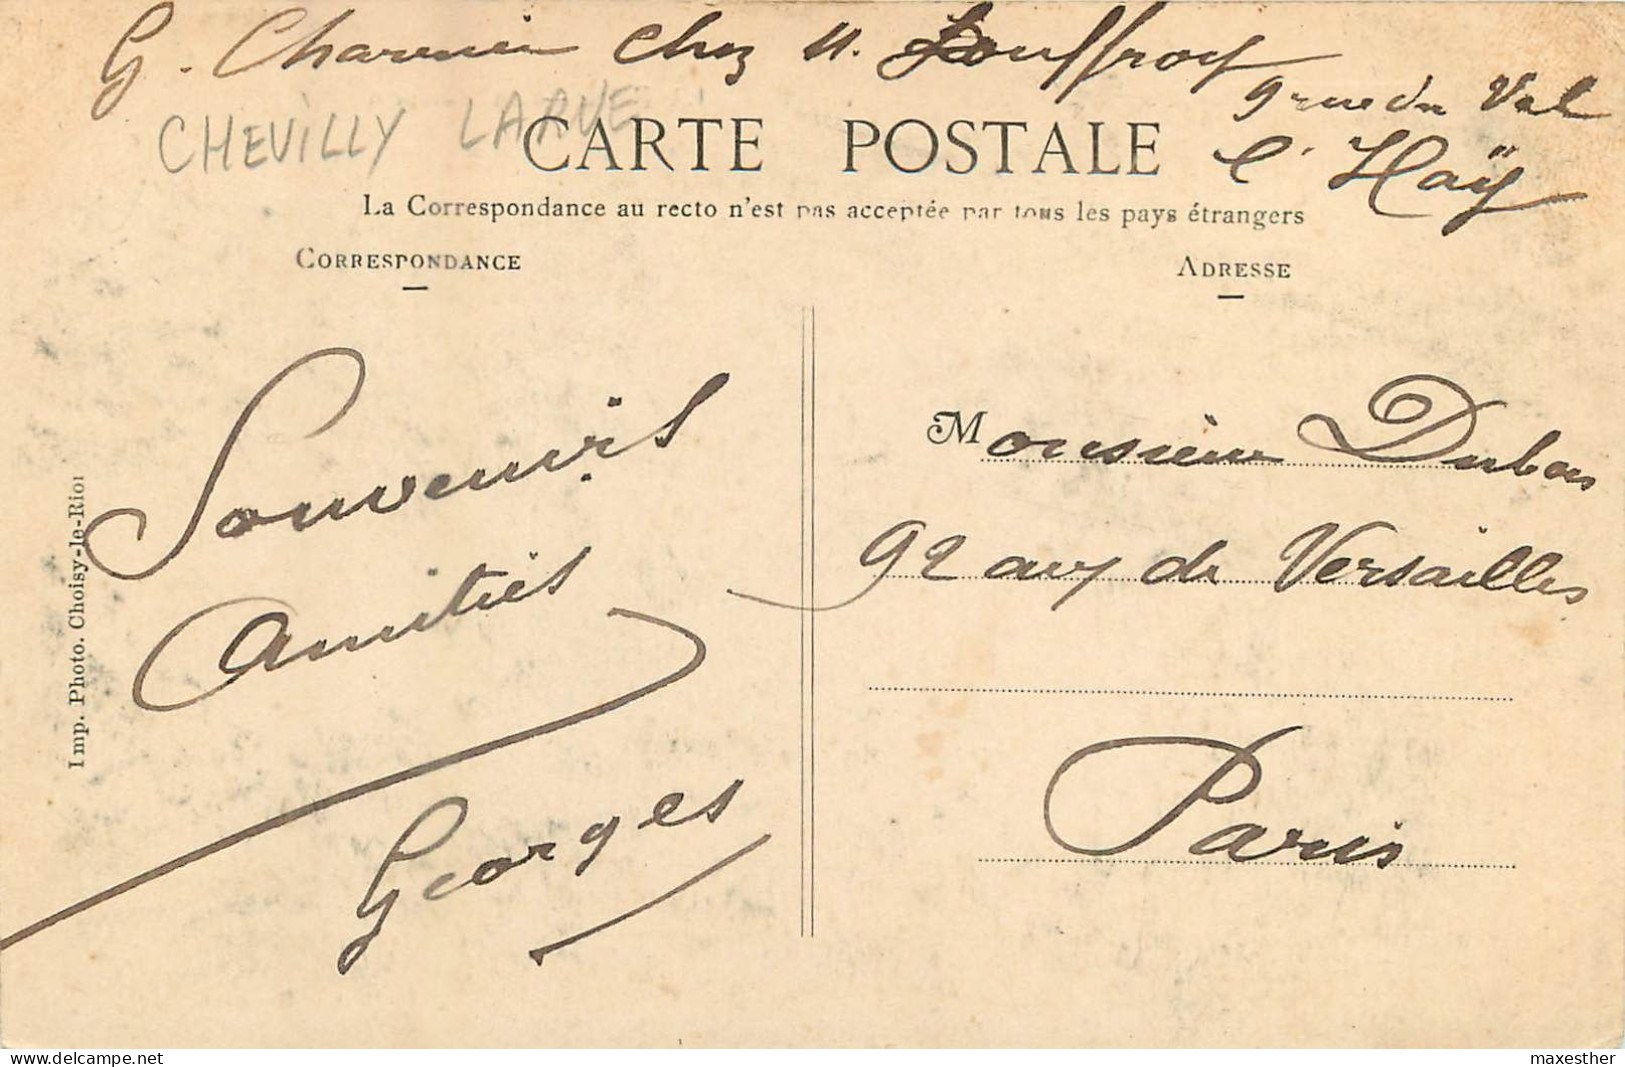 G. Charmin chez M. Jouffroy
9 rue du Val
l'Haÿ
CHEVILLY LARUE
CARTE POSTALE
La Correspondance au recto n'est pas acceptée par tous les pays étrangers
CORRESPONDANCE
ADRESSE
Souvenirs
Amitiés
Georges
Monsieur Dubois
92 av de Versailles
Paris
Imp. Photo. Choisy-le-Roi
delcampe.net
maxesther